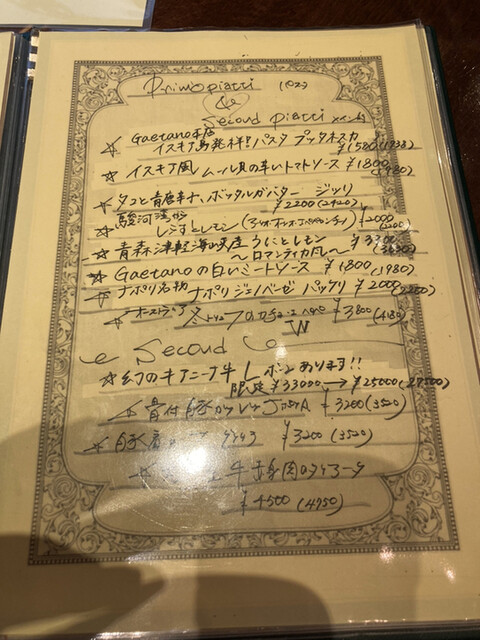 Primo piatti
&
Second piatti メイン
☆ Gaetano本店
イスキア島発祥! パスタ プッタネスカ
¥1580(1738)
☆ イスキア風 ムール貝の辛いトマトソース ¥1800
(1980)
☆ タコと青唐辛子、ボッタルガバター ジッリ
¥2200(2420)
☆ 駿河湾から
しらすとレモン ¥2000
(2200)
☆ 青森津軽海峡産 うにとレモン
〜ロマンティカ風〜
☆ Gaetanoの白いミートソース ¥1800(1980)
☆ ナポリ名物 ナポリジェノベーゼ パッケリ ¥2000(2200)
トリュフの ¥3800(4180)
Second
☆ 幻のキアニーナ牛Lボーンあります!!
限定 ¥33000→¥25000(27500)
☆ 骨付豚カツレツ ¥3200(3520)
☆ 豚肩 ¥3200(3520)
☆ 牛赤身肉のタリアータ
¥4500(4950)